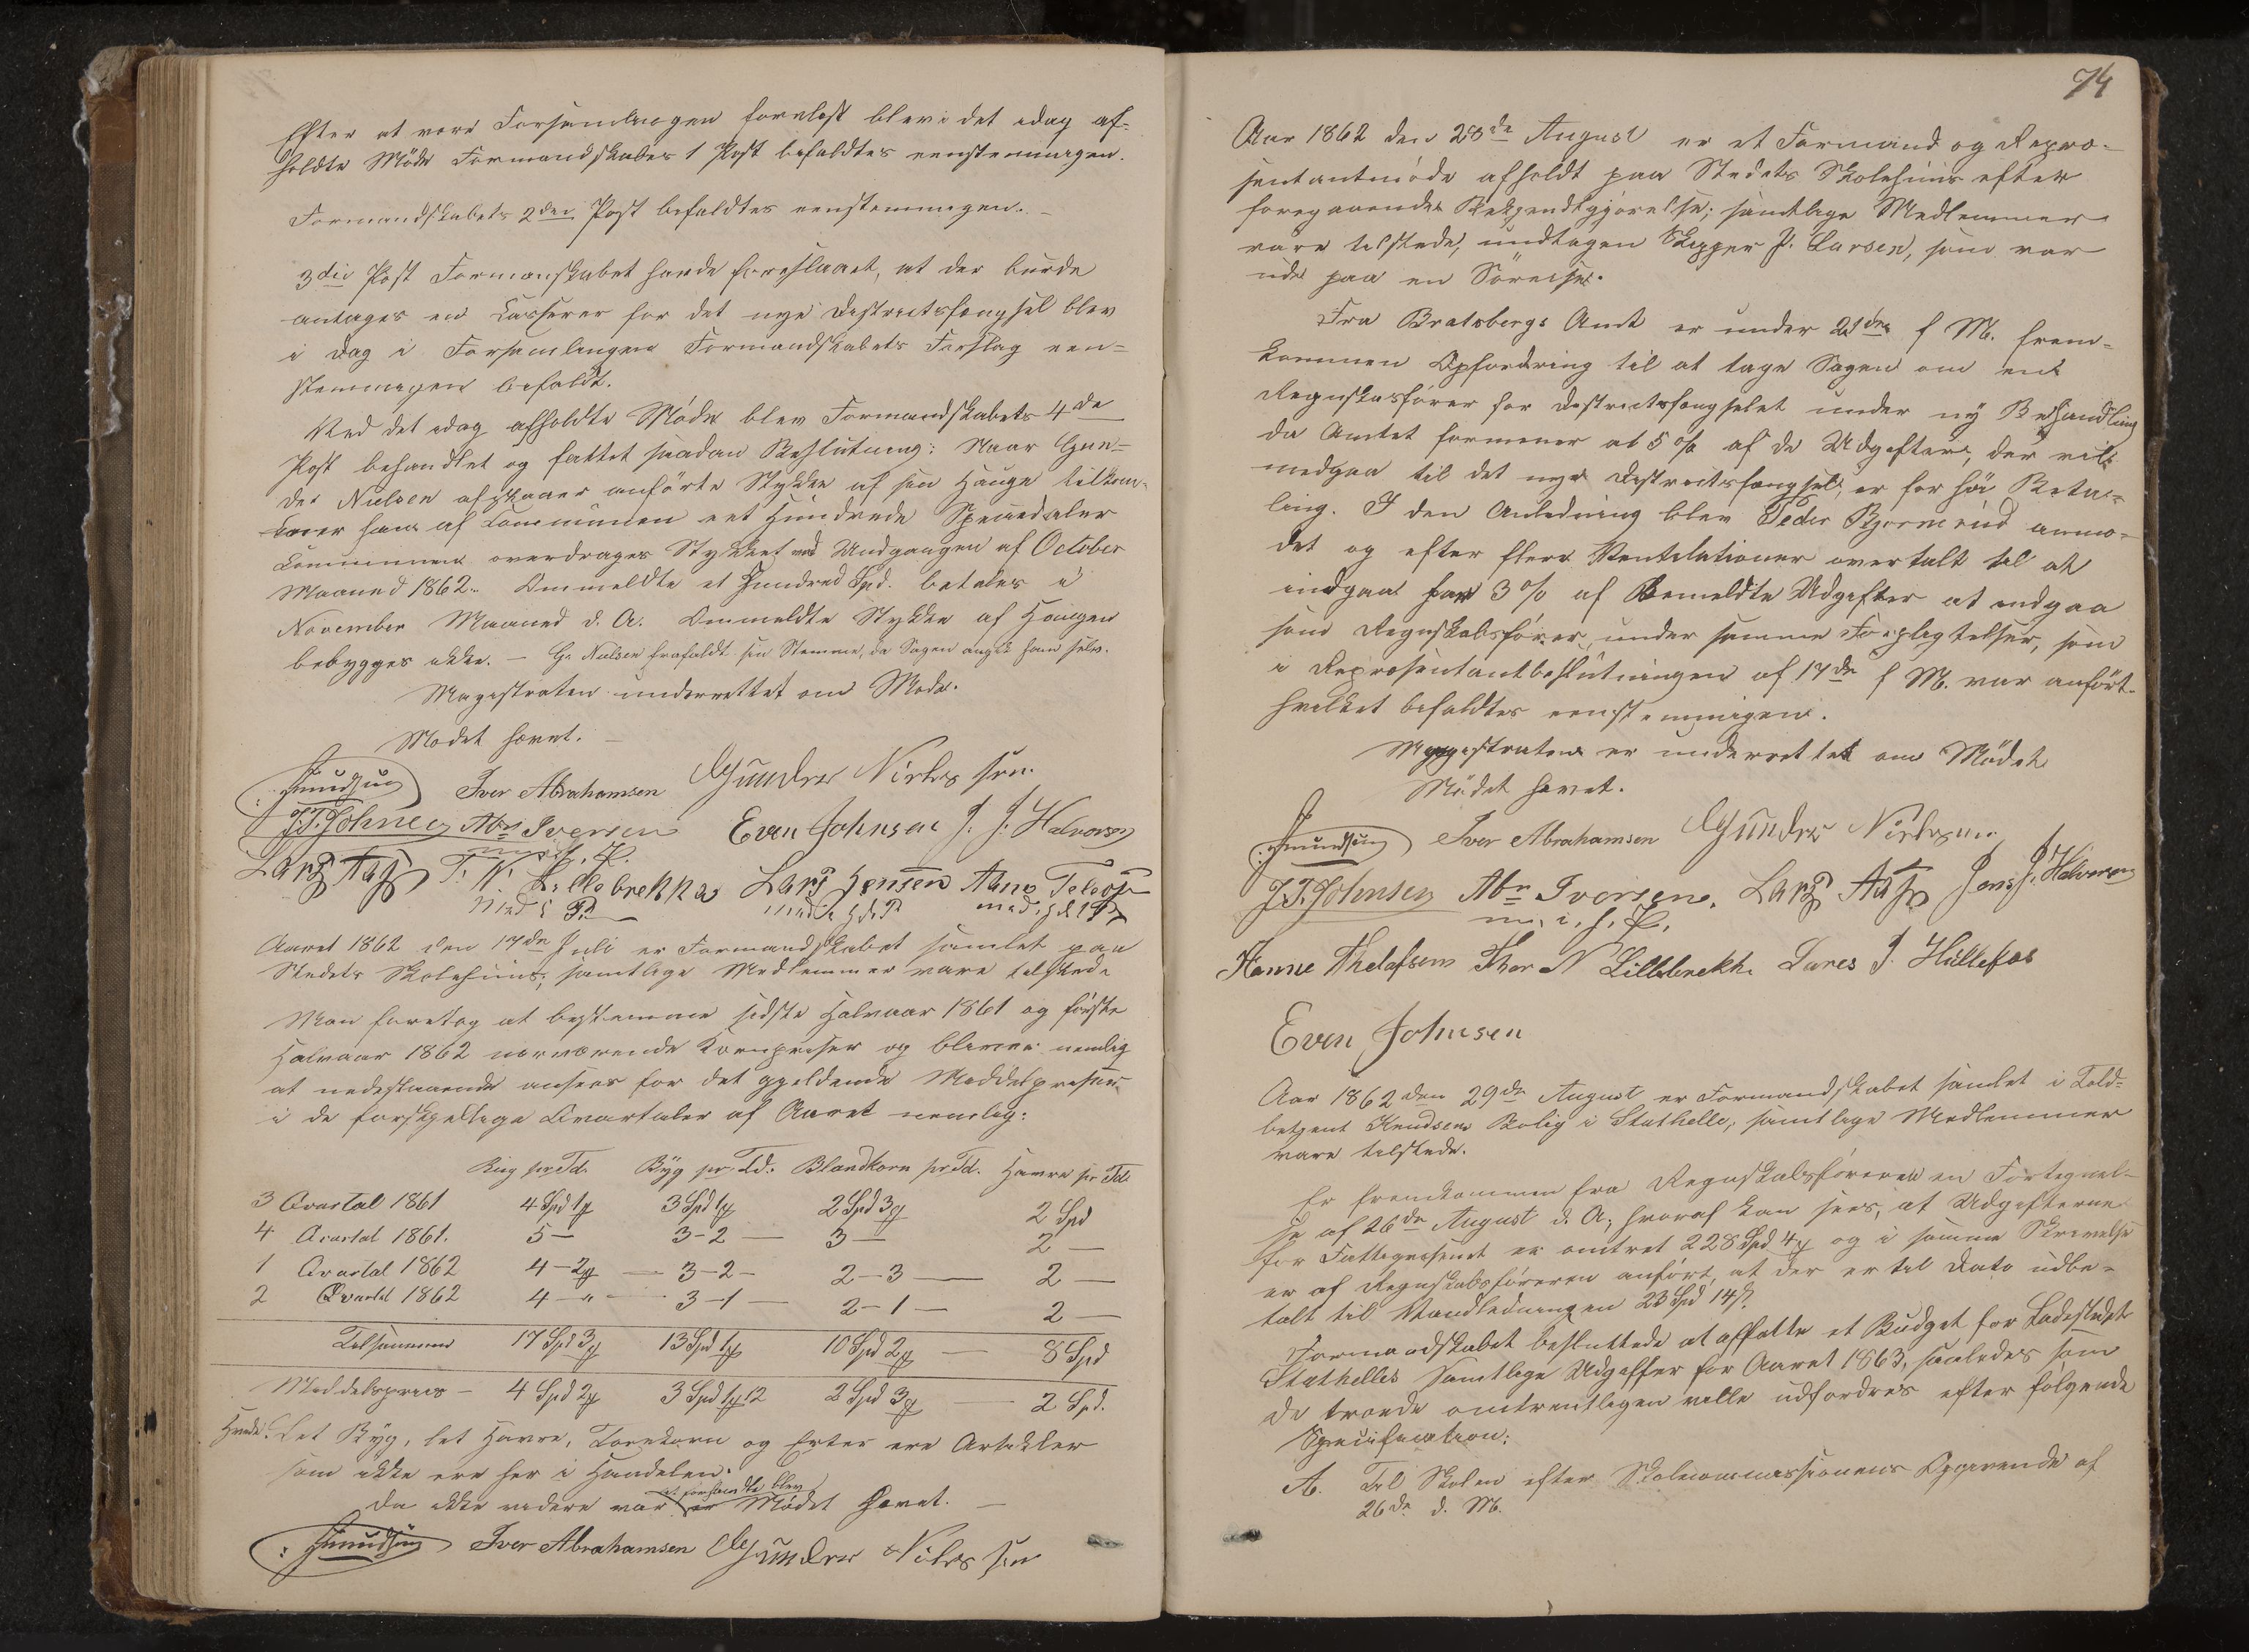 Efter at være Forsamlingen forelæst blev i det idag af-
holdte Møde Formandskabets 1 Post bifaldtes eenstemmigen.
Formandskabets 2den Post bifaldtes eenstemmigen. –
3die Post Formanskabet havde foreslaaet, at der burde
antages en Casserer for det nye Destrictsfængsel blev
i Dag i Forsamlingen Formandskabets Forslag een=
stemmigen bifaldt.
Ved det idag afholdte Møde blev Formandskabets 4de
Post behandlet og fattet saadan Beslutning: Naar Gun=
der Nielsen afstaaer anførte Stykke af sin Hauge tilkom-
mer ham af Communen eet Hundrede Speciedaler
Communen overdrages Stykket ved Undgangen af October
Maaned 1862. Ommeldte et Hundred Spd. betales i
November Maaned d. A. Ommeldte Stykke af Haugen
bebygges ikke. – G. Nielsen frafaldt sin Stemme, da Sagen angik ham selv.
Magistraten underrettet om Møde.
Mødet hævet. –
Knudsen Iver Abrahamsen Gunder Nielssen
J.T. Johnsen Abr Iversen Even Johnsen J. J. Halvorsen
m. i. h. P.
Lars Aas T. N. Lillebrekka Lars Jensen Hans Telefs
Med P. med h. P. med h. P.
Aaret 1862 den 17de Juli er Formandskabet samlet paa
Stedets Skolehuus; samtlige Medlemmer vare tilstede
Man foretog at bestemme sidste Halvaar 1861 og første
Halvaar 1862 nærværende Kornpriser og bliver nemlig
at nedestaaende ansees for det gjeldende Middelpriser
i de forskjellige Qvartaler af Aaret nemlig:
Rug pr Td. Byg pr. Td. Blandkorn pr Td. Havre pr Td
3 Qvartal 1861 4 Spd 1 3 Spd 1 2 Spd 3 2 Spd
4 Qvartal 1861. 5 – 3-2 – 3 – 2 –
1 Qvartal 1862 4-2 – 3-2 – 2-3 – 2 –
2 Qvartal 1862 4-" – 3-1 – 2-1 – 2 –
Tilsammen 17 Spd 3 13 Spd 1 10 Spd 2 – 8 Spd
Middelspriis – 4 Spd 2 3 Spd 1 12 2 Spd 3 – 2 Spd.
Hvede, Let Byg, let Havre, Torekorn og Erter ere Artikler
som ikke ere her i Handelen.
at forhandle blev
Da ikke videre var er Mødet Hævet. –
Knudsen Iver Abrahamsen Gunder Nielssen
74
Aar 1862 den 28de August er et Formand og Repræ-
sentantmøde afholdt paa Stedets Skolehuus efter
foregaaende Bekjendtgjørelse; samtlige Medlemmer
vare tilstede, undtagen Skipper J. Larsen, som var
ude paa en Søreise.
Fra Bratsbergs Amt er under 21de f. M. frem-
kommen Opfordring til at tage Sagen om en
Regnskabsfører for Destrictsfængselet under ny Behandling
da Amtet formener at 5 % af de Udgifter, der vil
medgaa til det nye Destrictsfængsel, er for høi Beta=
ling. I den Anledning blev Peder Bjørnerud anmo-
det og efter flere Ventilationer overtalt til at
indgaa for 3 % af Bemeldte Udgifter at indgaa
som Regnskabsfører, under samme Forpligtelser, som
i Repræsentantbeslutningen af 17de f. M. var anført.
hvilket bifaldtes eenstemmigen.
Magistraten er underrettet om Mødet
Mødet hævet.
Knudsen Iver Abrahamsen Gunder Nielssen
J.T. Johnsen Abr Iversen. Lars Aas Jens J. Halvorsen
m. i. h. P.
Hanne Thelefsen Thor N Lillebrekke Lares J. Hullefos
Even Johnsen
Aar 1862 den 29de August er Formandskabet samlet i Told-
betjent Knudsens Bolig i Stathelle, samtlige Medlemmer
vare tilstede.
Er fremkommen fra Regnskabsføreren en Fortegnel-
se af 26de August d. A., hvoraf kan sees, at Udgifterne
for Fattigvæsenet er omtret 228 Spd 4 og i samme Skrivelse
er af Regnskabsføreren anført, at der er til Dato udbe-
talt til Vandledningen 23 Spd 14 s.
Formandskabet besluttede at affatte et Budget for Ladestedet
Stathelles samtlige Udgifter for Aaret 1863, saaledes som
de troede omtrentligen ville udfordres efter følgende
Specification:
A. Til Skolen efter Skolecommissionens Opgivende af
26de d. M.